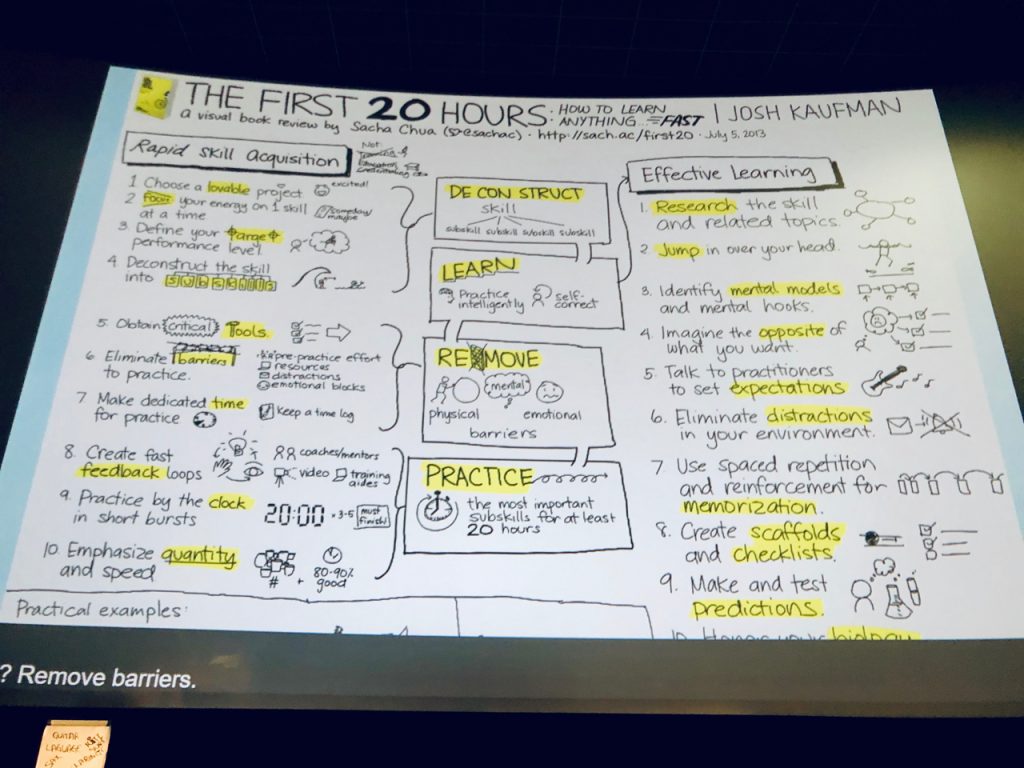 THE FIRST 20 HOURS: HOW TO LEARN
ANYTHING... FAST | JOSH KAUFMAN
a visual book review by Sacha Chua (@sachac) · http://sach.ac/first20 · July 5, 2013
Rapid Skill Acquisition
Not:
1. Choose a lovable project
excited!
2. Focus your energy on 1 skill
at a time.
someday/
maybe
3. Define your target
performance level.
4. Deconstruct the skill
into subskills
5. Obtain critical Tools.
6. Eliminate barriers
to practice.
pre-practice effort
resources
distractions
emotional blocks
7. Make dedicated time
for practice
Keep a time log
8. Create fast
feedback loops
coaches/mentors
video
training
aides
9. Practice by the clock
in short bursts
20:00 × 3-5
must
finish!
10. Emphasize quantity
and speed
# +
80-90%
good
Practical examples:
DECONSTRUCT
skill
subskill subskill subskill subskill
LEARN
Practice
intelligently
self-
correct
REMOVE
physical
mental
emotional
barriers
PRACTICE
the most important
subskills for at least
20 hours
Effective Learning
1. Research the skill
and related topics.
2. Jump in over your head.
3. Identify mental models
and mental hooks.
4. Imagine the opposite of
what you want.
5. Talk to practitioners
to set expectations
6. Eliminate distractions
in your environment.
7. Use spaced repetition
and reinforcement for
memorization.
8. Create scaffolds
and checklists.
9. Make and test
predictions.
10. Honor your biology
? Remove barriers.
GUITAR
LAGUAGE
SAX